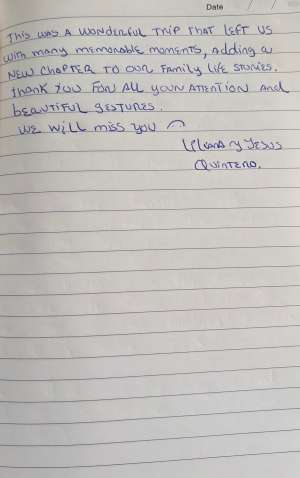 Date / /
This was a wonderful trip that left us
with many memorable moments, adding a
new chapter to our family life stories.
Thank you for all your attention and
beautiful gestures.
We will miss you
y Jesus
Quintero.